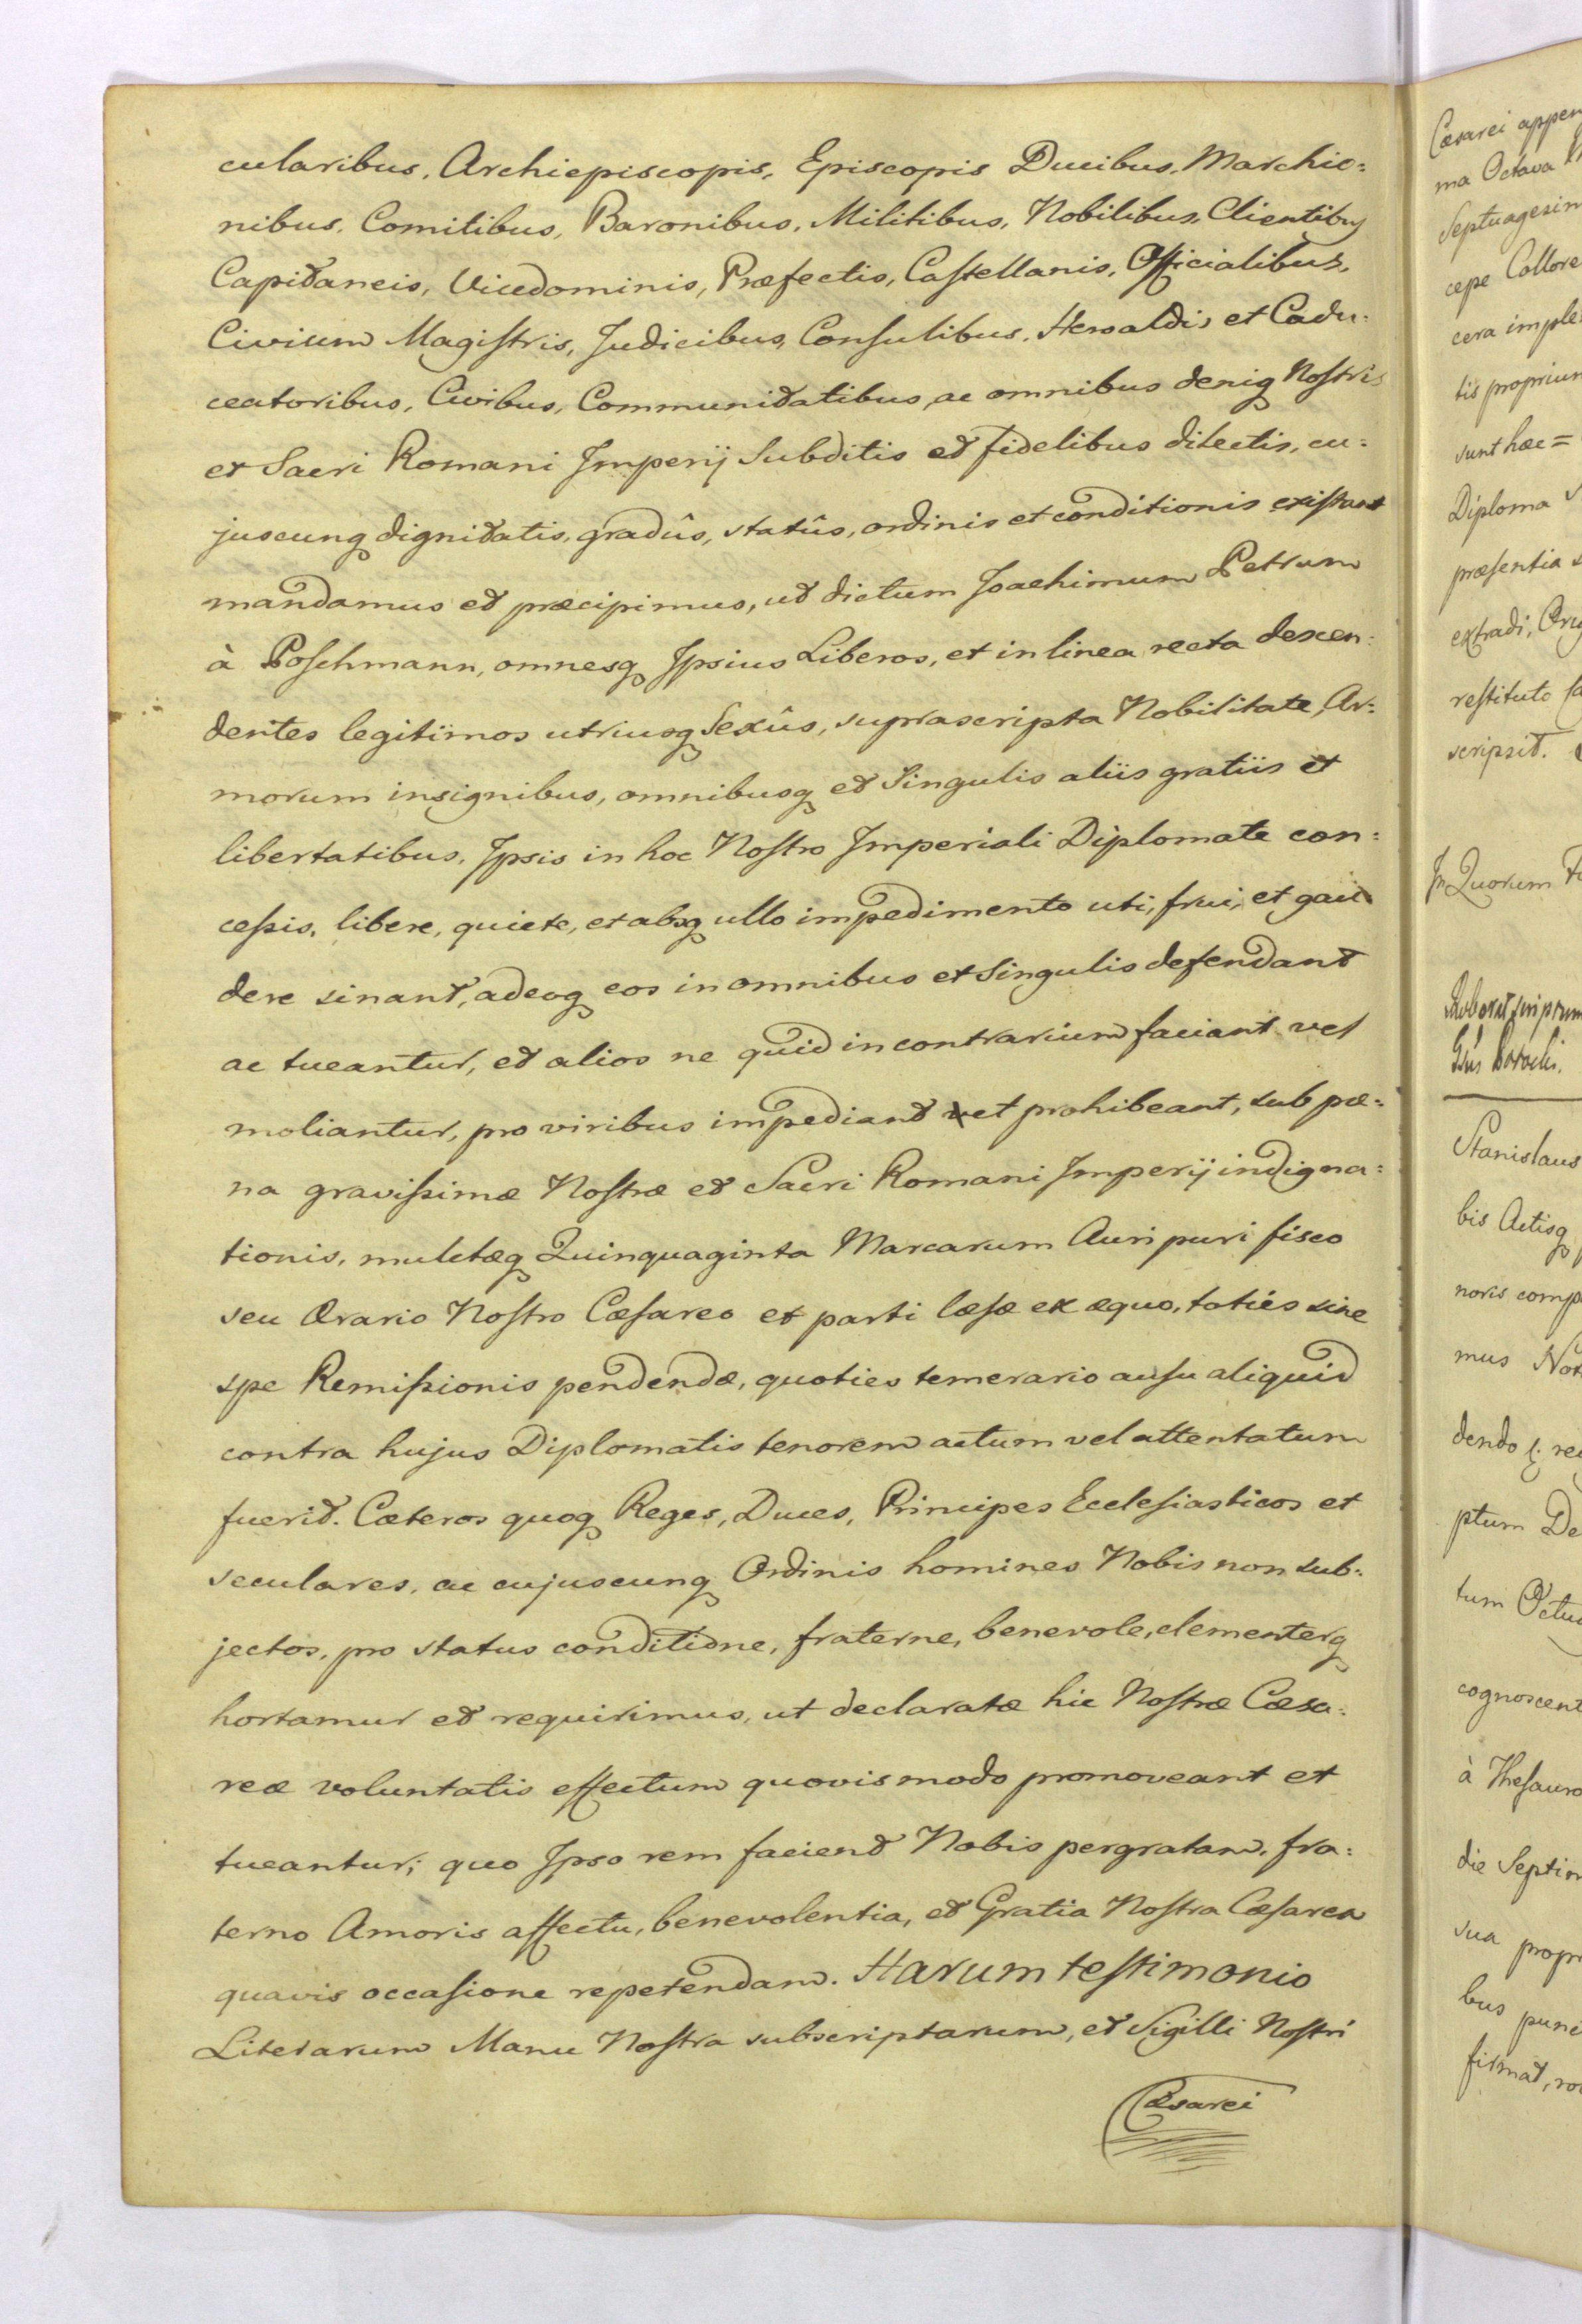 cularibus, Archiepiscopis, Episcopis Ducibus, Marchio=
nibus, Comitibus, Baronibus, Militibus, Nobilibus, Clientibus
Capitaneis, Vicedominis, Præfectis, Castellanis, Officialibus,
Civium Magistris, Judicibus, Consulibus, Heroaldis et Cadu=
ceatoribus, Civibus, Communitatibus, ac omnibus deniq Nostris
et Sacri Romani Imperij Subditis et fidelibus dilectis, cu=
juscunq dignitatis, gradûs, statûs, ordinis et conditionis existant
mandamus et præcipimus, ut dictum Joachimum Petrum
à Poschmann, omnesq Ipsius Liberos, et in linea recta descen=
dentes legitimos utriusq Sexûs, suprascripta Nobilitate, Ar=
morum insignibus, omnibusq et Singulis aliis gratiis et
libertatibus, Ipsis in hoc Nostro Imperiali Diplomate con=
cessis, libere, quiete, et absq ullo impedimento uti, frui, et gau
dere sinant, adeoq eos in omnibus et Singulis defendant
ac tueantur, et alios ne quid in contrarium faciant vel
moliantur, pro viribus impediant et prohibeant, sub pæ=
na gravissimæ Nostræ et Sacri Romani Imperij indigna=
tionis, mulctæq Quinquaginta Marcarum Auri puri fisco
seu Ærario Nostro Cæsareo et parti læsæ ex æquo, toties sine
spe Remissionis pendendæ, quoties temerario ausu aliquid
contra hujus Diplomatis tenorem actum vel attentatum
fuerit. Cæteros quoq Reges, Duces, Principes Ecclesiasticos et
seculares, ac cujuscunq Ordinis homines Nobis non sub=
jectos, pro status conditione, fraterne, benevole, clementerq
hortamur et requirimus, ut declaratæ hic Nostræ Cæsa=
reæ voluntatis effectum quovis modo promoveant et
tueantur; quo Ipso rem facient Nobis pergratam, fra=
terno Amoris affectu, benevolentia, et Gratia Nostra Cæsarea
quavis occasione repetendam. Harum testimonio
Literarum Manu Nostra subscriptarum, et Sigilli Nostri
Cæsarei
Cæsarei
ma Octava
cepe
cera
tis proprium
sunt hæc=
Diploma
præsentia
extradi,
scripsit.
In Quorum
Stanislaus
bis Actisq
noris
mus
dendo
ptum
tum
à
die
sua
bus
firmat,